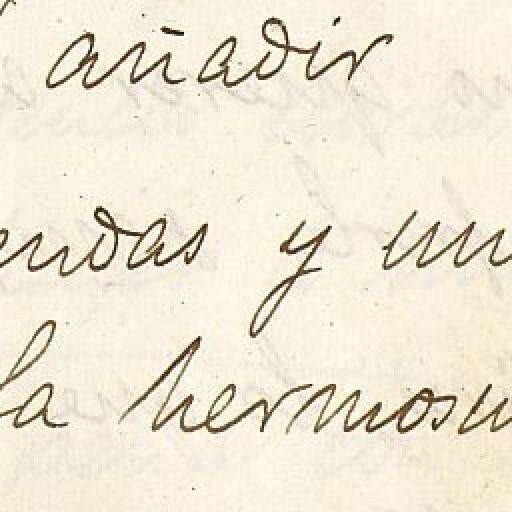 añadir
endas y un
la hermosu